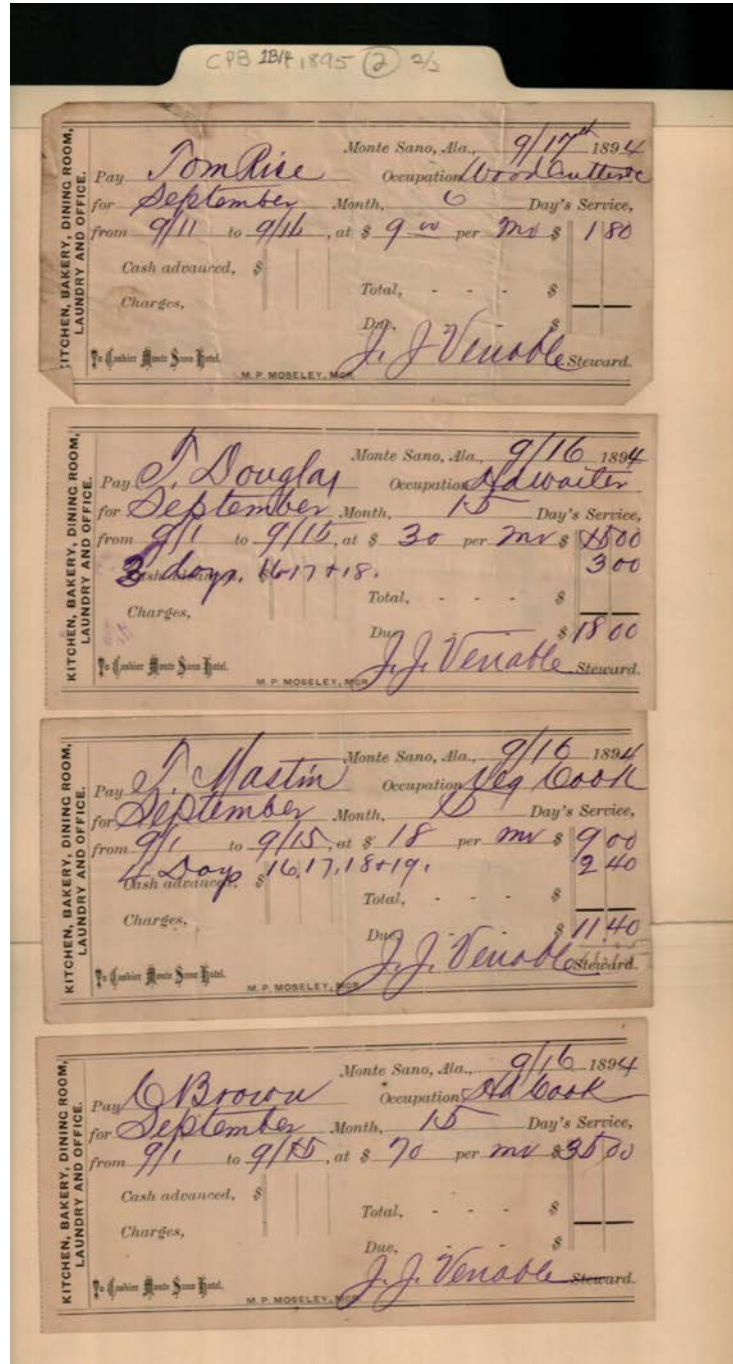 CPB 1B14 1895 (2) 2/2
KITCHEN, BAKERY, DINING ROOM,
LAUNDRY AND OFFICE.
Monte Sano, Ala., 9/17th 1894
Pay Tom Rise Occupation Wood Cutter
for September Month, 6 Day's Service,
from 9/11 to 9/16, at $ 9 00 per Mo $ 1 80
Cash advanced, $
Total, - - - $
Charges,
Due, - - $
To Cashier Monte Sano Hotel. J. J. Venable Steward.
M. P. MOSELEY, MGR.
KITCHEN, BAKERY, DINING ROOM,
LAUNDRY AND OFFICE.
Monte Sano, Ala., 9/16 1894
Pay T. Douglas Occupation Hd waiter
for September Month, 15 Day's Service,
from 9/1 to 9/15, at $ 30 per Mo $ 15 00
3 days. 16.17+18. 3 00
Cash advanced,
Total, - - - $
Charges,
Due, - - $ 18 00
To Cashier Monte Sano Hotel. J. J. Venable Steward.
M. P. MOSELEY, MGR.
KITCHEN, BAKERY, DINING ROOM,
LAUNDRY AND OFFICE.
Monte Sano, Ala., 9/16 1894
Pay T. Mastin Occupation Veg Cook
for September Month, 15 Day's Service,
from 9/1 to 9/15, at $ 18 per Mo $ 9 00
4 Days 16.17.18+19. 2 40
Cash advanced, $
Total, - - - $
Charges,
Due, - - $ 11.40
To Cashier Monte Sano Hotel. J. J. Venable Steward.
M. P. MOSELEY, MGR.
KITCHEN, BAKERY, DINING ROOM,
LAUNDRY AND OFFICE.
Monte Sano, Ala., 9/16 1894
Pay C Brown Occupation Hd Cook
for September Month, 15 Day's Service,
from 9/1 to 9/15, at $ 70 per Mo $ 35 00
Cash advanced, $
Total, - - - $
Charges,
Due, - - $
To Cashier Monte Sano Hotel. J. J. Venable Steward.
M. P. MOSELEY, MGR.